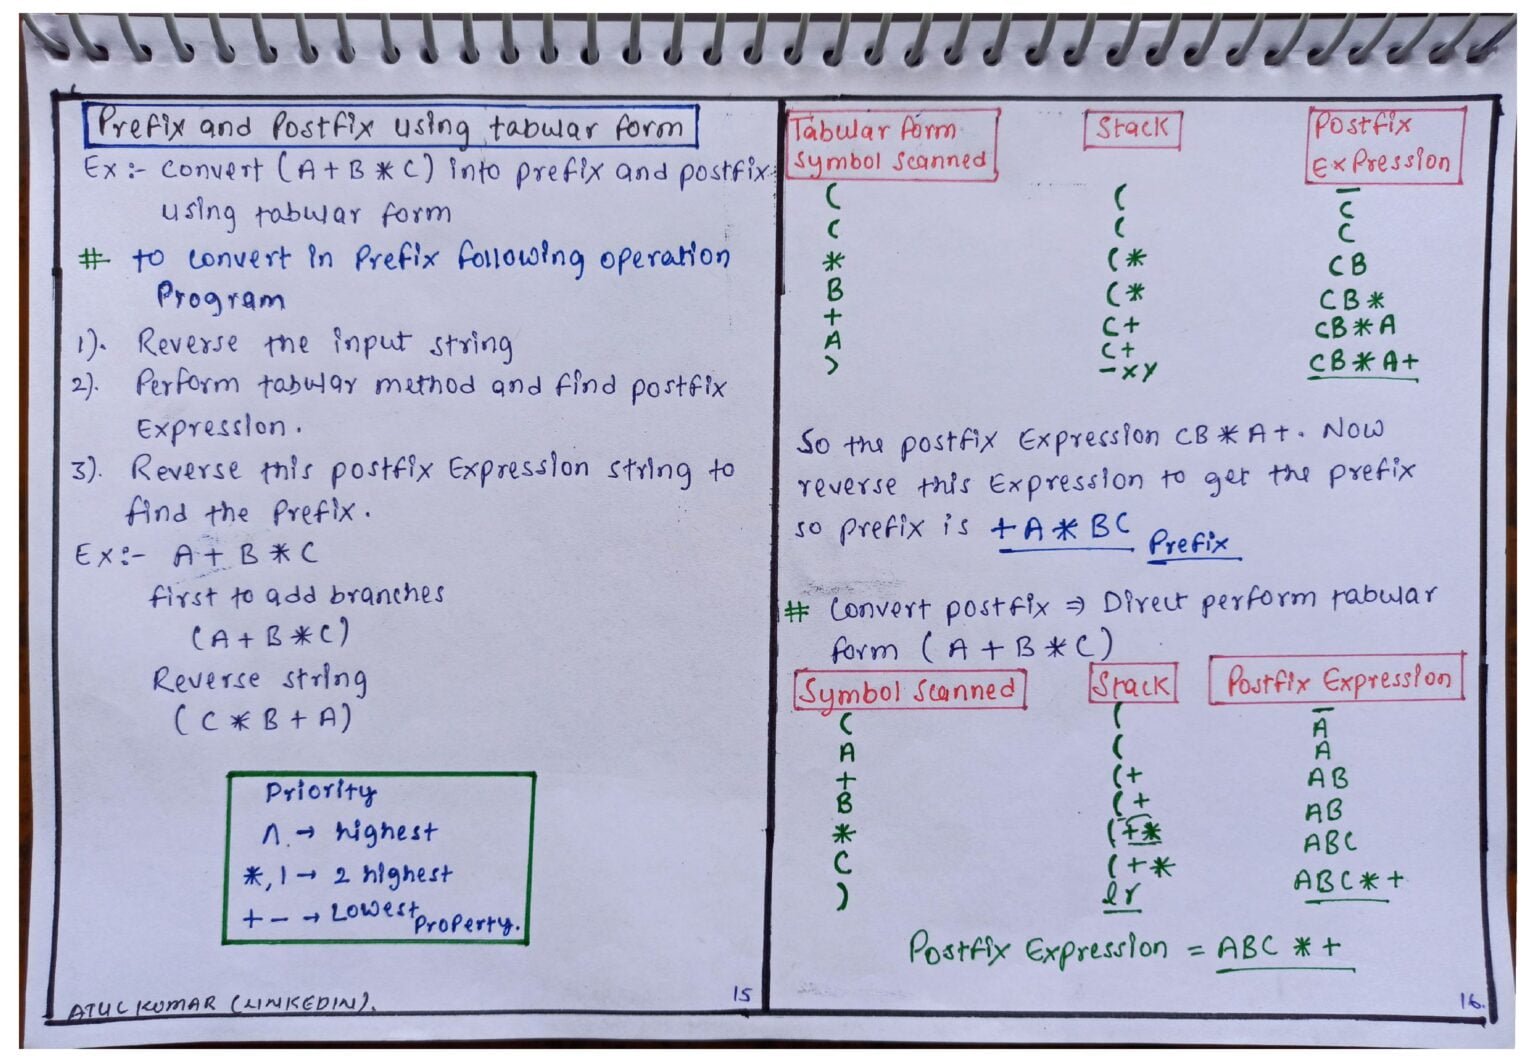 Prefix and Postfix using tabular form
Ex :- Convert (A+B*C) into prefix and postfix
using tabular form
# to convert in Prefix following operation
Program
1). Reverse the input string
2). Perform tabular method and find postfix
Expression.
3). Reverse this postfix Expression string to
find the Prefix.
Ex:- A + B * C
first to add branches
(A + B * C)
Reverse string
( C * B + A)
Priority
^ → highest
*, / → 2 highest
+ - → Lowest Property.
ATUL KUMAR (LINKEDIN).
15
Tabular form Symbol Scanned Stack Postfix Expression
( ( –
C ( C
* (* C
B (* CB
+ (+ CB*
A (+ CB*A
) CB*A+
So the postfix Expression CB*A+. Now
reverse this Expression to get the prefix
so prefix is +A*BC Prefix
# Convert postfix ⇒ Direct perform tabular
form ( A + B * C )
Symbol Scanned Stack Postfix Expression
( ( –
A ( A
+ (+ A
B (+ AB
* (+* AB
C (+* ABC
) ABC*+
Postfix Expression = ABC *+
16.